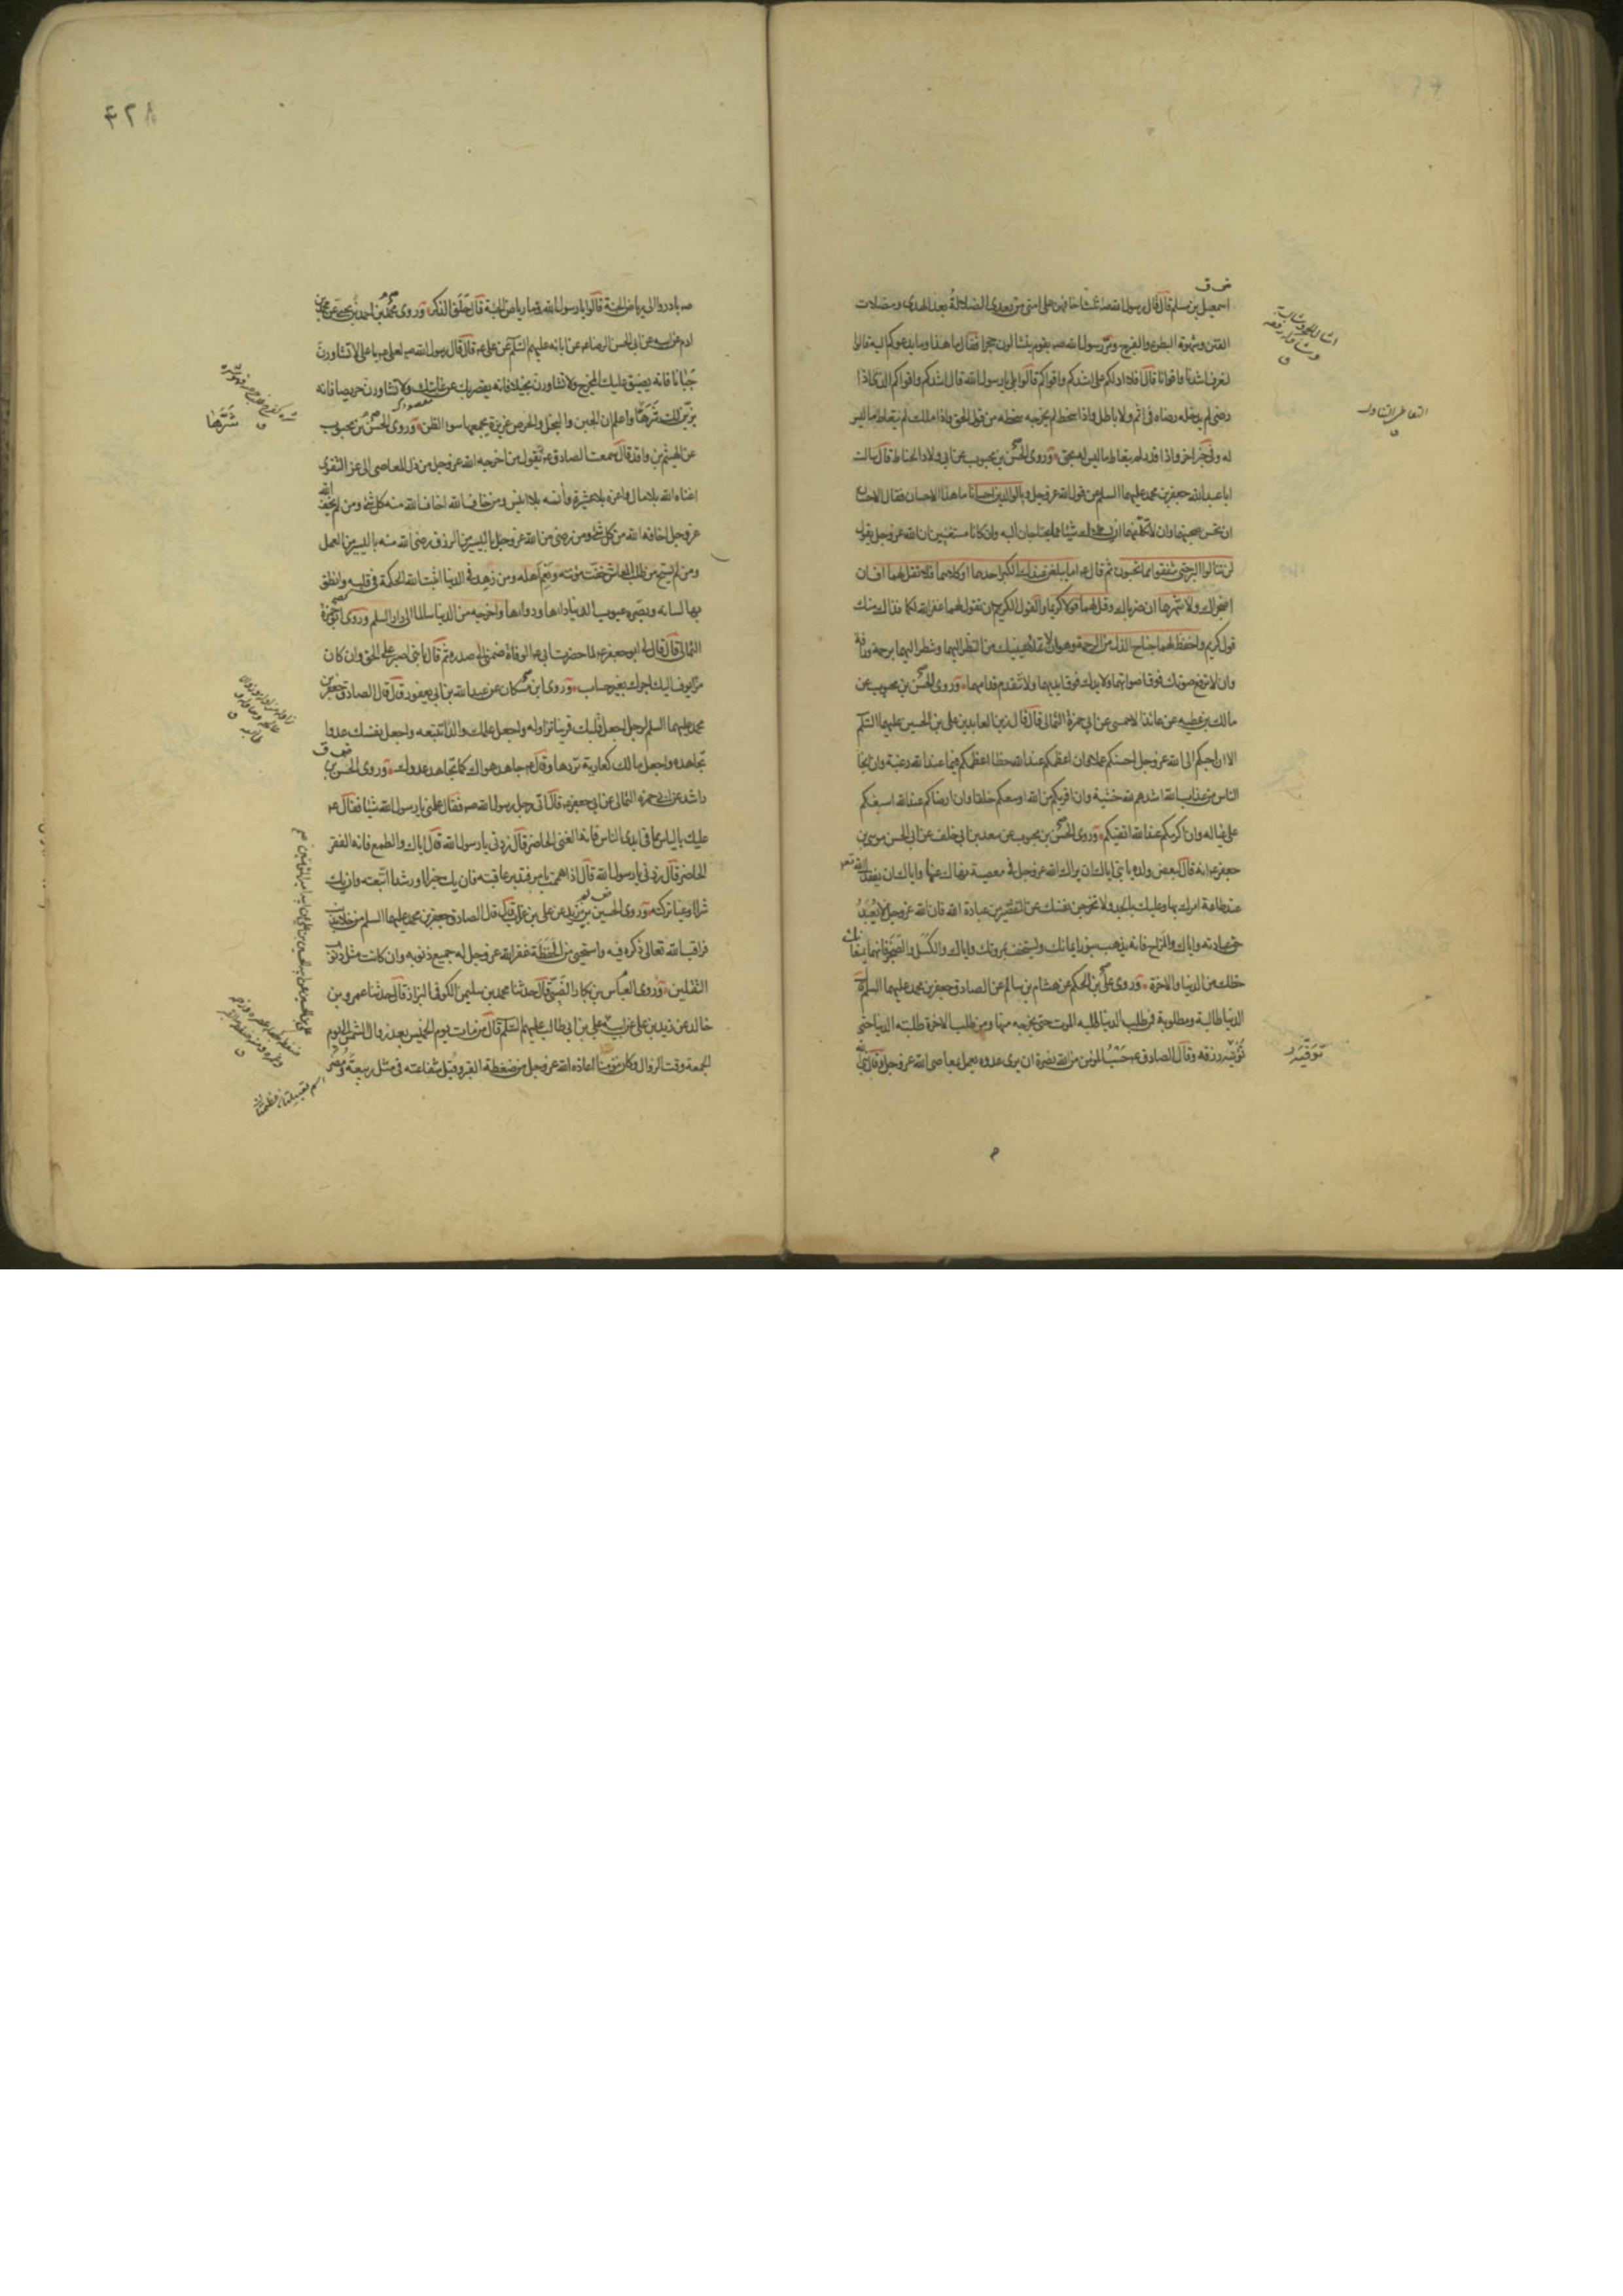 اسمعيل بن مسلم قال قال رسول الله صه ثلث اخافهن على امتى من بعدى الضلالة بعد الهدى ومضلات
الفتن وشهوة البطن والفرج ومر رسول الله صه بقوم يتشالون حجرا فقال ما هذا وما يدعوكم اليه قالوا
لنعرف اشدنا واقوانا قال افلا ادلكم على اشدكم واقواكم قالوا بلى يا رسول الله قال اشدكم واقواكم الذى اذا
رضى لم يدخله رضاه فى اثم ولا باطل واذا سخط لم يخرجه سخطه من قول الحق واذا ملك لم يتعاط ما ليس
له وفى خبر اخر واذا قدر لم يتعاط ما ليس له بحق وروى الحسن بن محبوب عن ابى ولاد الحناط قال سالت
ابا عبد الله جعفر بن محمد عليهما السلم عن قول الله عز وجل وبالوالدين احسانا ما هذا الاحسان فقال الاحسان
ان تحسن صحبتهما وان لا تكلفهما ان يسالاك شيئا مما يحتاجان اليه وان كانا مستغنيين ان الله عز وجل يقول
لن تنالوا البر حتى تنفقوا مما تحبون ثم قال عم اما يبلغن عندك الكبر احدهما او كلاهما فلا تقل لهما اف ان
اضجراك ولا تنهرهما ان ضرباك وقل لهما قولا كريما والقول الكريم ان تقول لهما غفر الله لكما فذاك منك
قول كريم واخفض لهما جناح الذل من الرحمة وهو ان لا تملأ عينيك من النظر اليهما وتنظر اليهما برحمة ورأفة
وان لا ترفع صوتك فوق اصواتهما ولا يدك فوق ايديهما ولا تتقدم قدامهما وروى الحسن بن محبوب عن
مالك بن عطيه عن عائذ الاحمسى عن ابى حمزة الثمالى قال قال زين العابدين على بن الحسين عليهما السلم
الا ان احبكم الى الله عز وجل احسنكم عملا وان اعظمكم عند الله حظا اعظمكم فيما عند الله رغبة وان انجا
الناس من عذاب الله اشدهم لله خشية وان اقربكم من الله اوسعكم خلقا وان ارضاكم عند الله اسبغكم
على عياله وان اكرمكم عند الله اتقيكم وروى الحسن بن محبوب عن سعد بن ابى خلف عن ابى الحسن موسى بن
جعفر عم انه قال لبعض ولده يا بنى اياك ان يراك الله عز وجل فى معصية نهاك عنها واياك ان يفقدك الله تعم
عند طاعة امرك بها وعليك بالجد ولا تخرجن نفسك من التقصير من عبادة الله فان الله عز وجل لا يعبد
حق عبادته واياك والمزاح فانه يذهب بنور ايمانك ويستخف بمروتك واياك والكسل والضجر فانهما يمنعانك
حظك من الدنيا والاخرة وروى على بن الحكم عن هشام بن سالم عن الصادق جعفر بن محمد عليهما السلم قال
الدنيا طالبة ومطلوبة فمن طلب الدنيا طلبه الموت حتى يخرجه منها ومن طلب الاخرة طلبته الدنيا حتى
توفيه رزقه وقال الصادق عم حسب المؤمن من الله نصرة ان يرى عدوه يعمل بمعاصى الله عز وجل وقال النبى
التعاطى التناول
۴۲۸
صه بادروا الى رياض الجنة قالوا يا رسول الله وما رياض الجنة قال حلق الذكر وروى محمد بن احمد بن يحيى عن محمد بن
ادم عن ابيه عن ابى الحسن الرضا عم عن ابائه عليهم السلم عن على عم قال قال رسول الله صه لعلى عم يا على لا تشاورن
جبانا فانه يضيق عليك المخرج ولا تشاورن بخيلا فانه يقصر بك عن غايتك ولا تشاورن حريصا فانه
يزين لك شرها واعلم ان الجبن والبخل والحرص غريزة يجمعها سوء الظن وروى الحسن بن محبوب
عن الهيثم بن واقد قال سمعت الصادق عم يقول من اخرجه الله عز وجل من ذل المعاصى الى عز التقوى
اغناه الله بلا مال واعزه بلا عشيرة وآنسه بلا انيس ومن خاف الله اخاف الله منه كل شئ ومن لم يخف الله
عز وجل اخافه الله من كل شئ ومن رضى من الله عز وجل باليسير من الرزق رضى الله منه باليسير من العمل
ومن لم يستح من طلب المعاش خفت مؤنته ونعم اهله ومن زهد فى الدنيا اثبت الله الحكمة فى قلبه وانطق
بها لسانه وبصره عيوب الدنيا داءها ودواءها واخرجه من الدنيا سالما الى دار السلم وروى ابو حمزة
الثمالى قال قال لى ابو جعفر عم لما حضرت ابى عم الوفاة ضمنى الى صدره ثم قال يا بنى اصبر على الحق وان كان
مرا يوف اليك اجرك بغير حساب وروى ابن مسكان عن عبد الله بن ابى يعفور قال قال الصادق جعفر بن
محمد عليهما السلم لرجل اجعل قلبك قرينا تزاوله واجعل علمك والدا تتبعه واجعل نفسك عدوا
تجاهده واجعل مالك كعارية تردها وقال عم جاهد هواك كما تجاهد عدوك وروى الحسن بن
راشد عن ابى حمزة الثمالى عن ابى جعفر عم قال اتى رجل رسول الله صه فقال علمنى يا رسول الله شيئا فقال عم
عليك بالياس مما فى ايدى الناس فانه الغنى الحاضر قال زدنى يا رسول الله قال اياك والطمع فانه الفقر
الحاضر قال زدنى يا رسول الله قال اذا هممت بامر فتدبر عاقبته فان يك خيرا ورشدا اتبعته وان يك
شرا او غيا تركته وروى الحسين بن يزيد عن على بن غراب قال قال الصادق جعفر بن محمد عليهما السلم من خلا بذنب
فراقب الله تعالى ذكره فيه واستحيى من الحفظة غفر الله عز وجل له جميع ذنوبه وان كانت مثل ذنوب
الثقلين وروى العباس بن بكار الضبى قال حدثنا محمد بن سليمن الكوفى البزاز قال حدثنا عمرو بن
خالد عن زيد بن على عن ابيه على بن ابى طالب عليهم السلم قال من مات يوم الخميس بعد زوال الشمس الى يوم
الجمعة وقت الزوال وكان مؤمنا اعاذه الله عز وجل من ضغطة القبر وقبل شفاعته فى مثل ربيعة ومضر
شرها